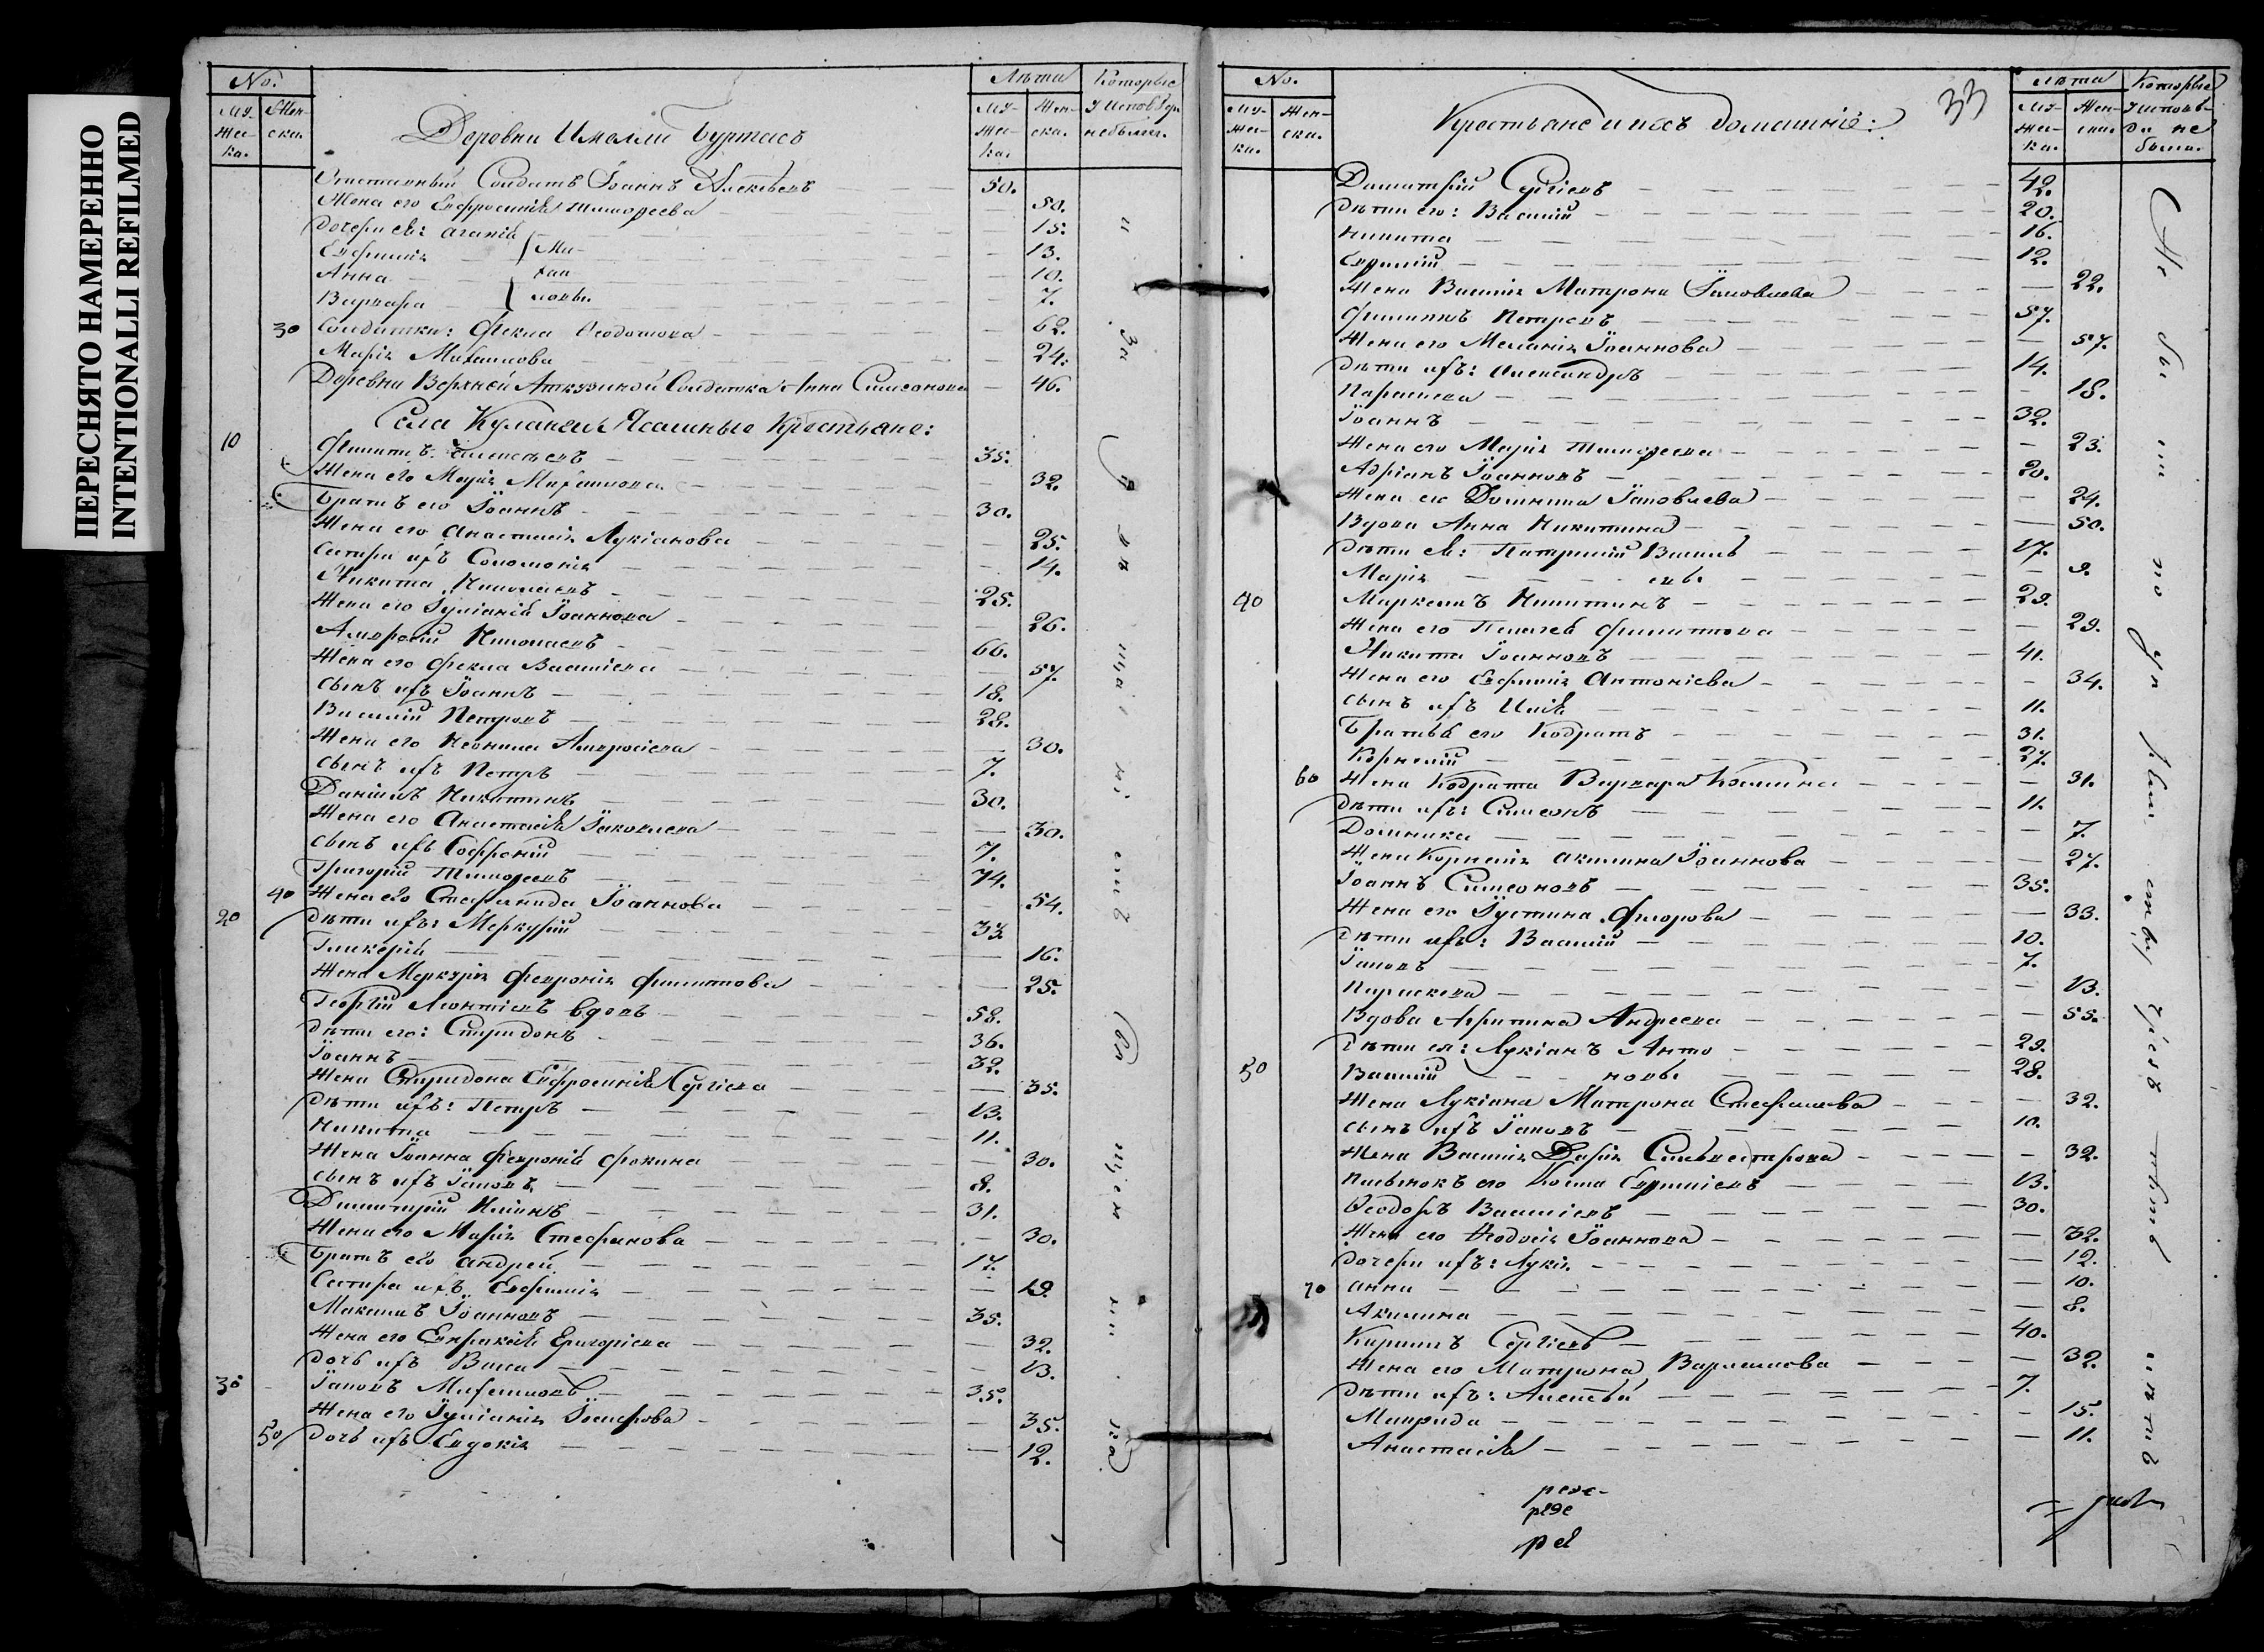 ПЕРЕСНЯТО НАМЕРЕННО
INTENTIONALLI REFILMED
No.
Му-
жес-
ка.
Жен-
ска.
Деревни Имелли Буртасъ
Лѣта
Му-
жес-
ка.
Жен-
ска.
Которые
у Исповѣди
не были.
Отставный Солдатъ Іоаннъ Алексѣевъ 50.
Жена его Евфросинія Тимоѳеева 50.
Дочери ея: Агапія 15.
Евфимія 13.
Анна 10.
Варвара 7.
Ми-
хаи
ловы
30 Солдатки: Фекла Ѳеодотова 62.
Марія Михаилова 24.
Деревни Верхней Аткозиной Солдатка Анна Симеонова 46.
Села Куланги Ясашные Крестьяне:
10 Филиппъ Алексѣевъ 35.
Жена его Марія Михаилова 32.
Братъ его Іоаннъ 30.
Жена его Анастасія Лукіанова 25.
Сестра ихъ Соломонія 14.
Никита Николаевъ 25.
Жена его Іуліанія Іоаннова 26.
Амвросій Николаевъ 60.
Жена его Фекла Василіева 57.
Сынъ ихъ Іоаннъ 18.
Василій Петровъ 28.
Жена его Неонила Амвросіева 30.
Сынъ ихъ Петръ 7.
Даніилъ Никитинъ 30.
Жена его Анастасія Іаковлева 30.
Сынъ ихъ Софроній 7.
Григорій Тимоѳеевъ 74.
40 Жена его Стефанида Іоаннова 54.
20 Дѣти ихъ: Меркурій 33.
Гликерія 16.
Жена Меркурія Февронія Филиппова 25.
Георгій Леонтіевъ вдовъ 58.
Дѣти его: Спиридонъ 36.
Іоаннъ 32.
Жена Спиридона Евфросинія Сергіева 35.
Дѣти ихъ: Петръ 13.
Никита 11.
Жена Іоанна Февронія Фокина 30.
Сынъ ихъ Іаковъ 8.
Димитрій Ильинъ 31.
Жена его Марія Стефанова 30.
Братъ его Андрей 17.
Сестра ихъ Евфимія 19.
Максимъ Іоанновъ 35.
Жена его Евпраксія Григоріева 32.
Дочь ихъ Васса 13.
30 Іаковъ Михаиловъ 35.
Жена его Іуліанія Іосифова 35.
50 Дочь ихъ Евдокія 12.
33
No.
Му-
жес-
ка.
Жен-
ска.
Крестьяне и ихъ домашніе:
Лѣта
Му-
жес-
ка.
Жен-
ска.
Которые
у исповѣ-
ди не
были.
Димитрій Сергіевъ 42.
Дѣти его: Василій 20.
Никита 16.
12.
Жена Василія Матрона Іаковлева 22.
Филиппъ Петровъ 57.
Жена его Меланія Іоаннова 57.
Дѣти ихъ: Александръ 14.
Параскева 18.
Іоаннъ 32.
Жена его Марія Тимоѳеева 23.
Адріанъ Іоанновъ 20.
Жена его Домника Іаковлева 24.
Вдова Анна Никитина 50.
Дѣти ея: Патрикій Василь 17.
Марія евы 9.
40 Маркеллъ Никитинъ 29.
Жена его Пелагея Филиппова 29.
Никита Іоанновъ 41.
Жена его Евфимія Антоніева 34.
Сынъ ихъ Илія 11.
Братья его Кодратъ 31.
Корнилій 27.
60 Жена Кодрата Варвара Космина 31.
Дѣти ихъ: Симеонъ 11.
Домника 7.
Жена Корнилія Акилина Іоаннова 27.
Іоаннъ Симеоновъ 35.
Жена его Іустина Флорова 33.
Дѣти ихъ: Василій 10.
Іаковъ 7.
Параскева 13.
Вдова Агрипина Андреева 55.
Дѣти ея: Лукіанъ Анто 29.
50 Василій новы 28.
Жена Лукіана Матрона Стефанова 32.
Сынъ ихъ Іаковъ 10.
Жена Василія Дарія Сильвестрова 32.
Косма 13.
Ѳеодоръ Василіевъ 30.
Жена его Ѳеодосія Іоаннова 32.
Дочери ихъ: Лукія 12.
70 Анна 10.
Акилина 8.
Кириллъ Сергіевъ 40.
Жена его Матрона Варламова 32.
Дѣти ихъ: Алексѣй 7.
Мавра 15.
Анастасія 11.